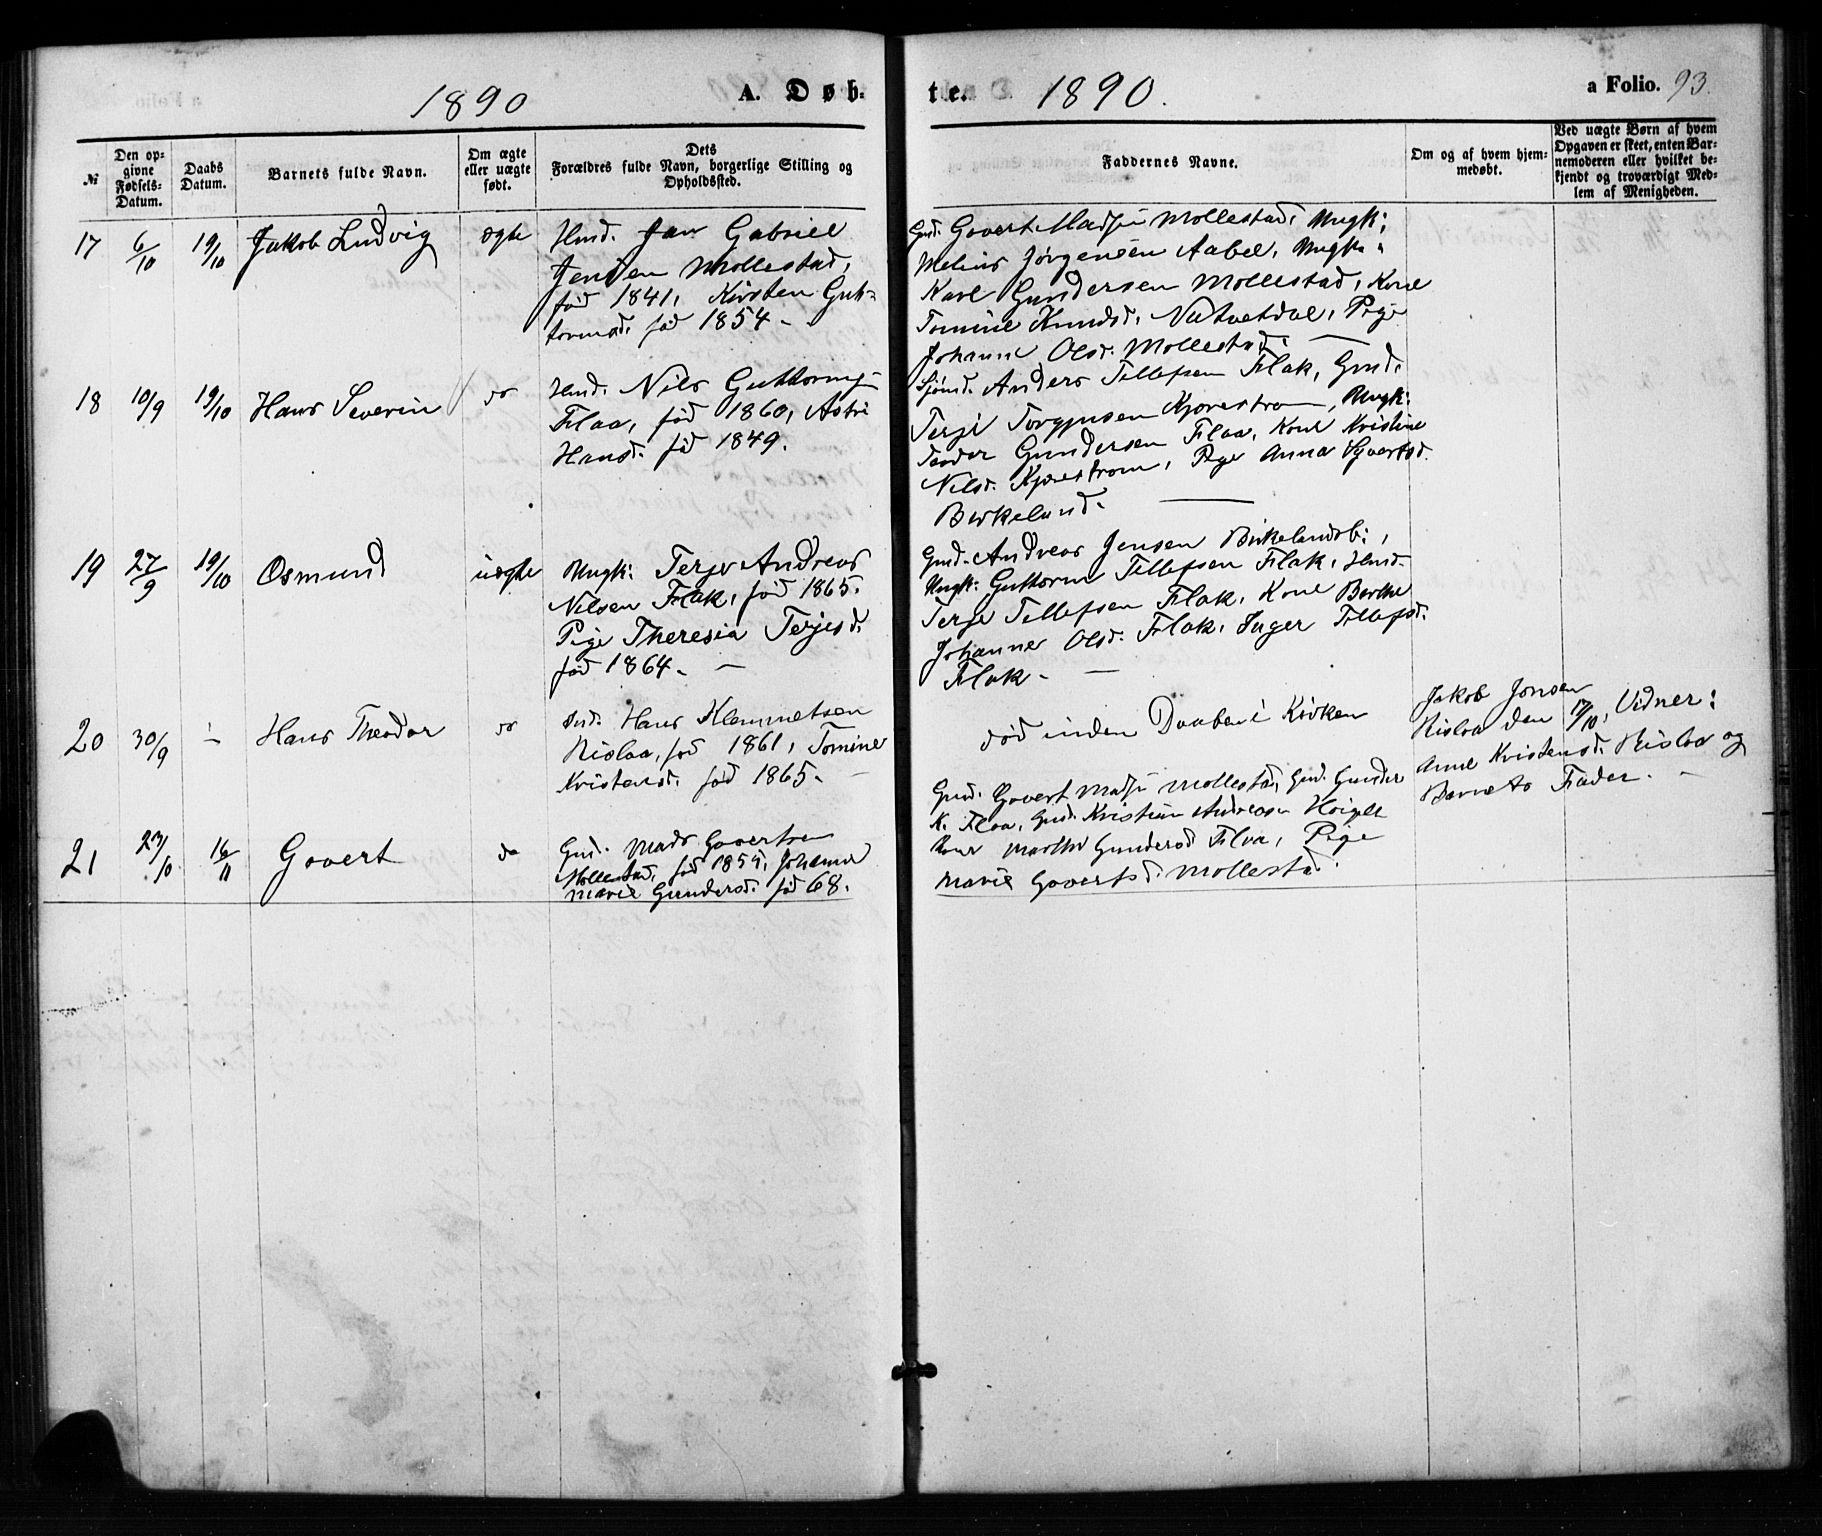 1890 A. Døb-
№
Den op-
givne
Fødsels-
Datum.
Daabs
Datum.
Barnets fulde Navn.
Om ægte
eller uægte
født.
Dets
Forældres fulde Navn, borgerlige Stilling og
Opholdssted.
17 6/10 19/10 Jakob Ludvig ægte Hmd. Jan Gabriel
Jensen Mollestad,
fød 1841, Kirsten Gut-
tormsd. fød 1854.
18 10/9 19/10 Hans Severin do Hmd. Nils Guttormsen
Flaa, fød 1860, Astri
Hansd. fød 1849.
19 27/9 19/10 Osmund uægte Ungk: Terje Andreas
Nilsen Flak, fød 1865.
Pige Theresia Terjesd.
fød 1864. —
20 30/9 — Hans Theodor do Hans Klemmetsen
Risloa, fød 1861, Tomine
Kristensd. fød 1865. —
21 23/10 16/11 Govert do Gmd. Mads Govertsen
Mollestad, fød 1854, Johanne
Marie Gundersd. fød 68.
te. 1890. a Folio. 93.
Faddernes Navne.
Om og af hvem hjem-
medøbt.
Ved uægte Børn af hvem
Opgaven er skeet, enten Bar-
nemoderen eller hvilket be-
kjendt og troværdigt Med-
lem af Menigheden.
Gmd. Govert Madsen Mollestad, Ungk:
Melius Jørgensen Aabel, Ungk.
Karl Gundersen Mollestad, Kone
Tomine Knudsd. Natvetdal, Pige
Johanne Olsd. Mollestad. —
Anders Tellefsen Flak, Gmd.
Terje Kjørestrom, Ungk:
Gundersen Flaa, Kone Kristine
Nilsd. Kjørestrom, Pige Anna Sjvertsd.
Birkeland. —
Gmd. Andreas Jensen Birkelandsb:,
Ungk: Guttorm Tellefsen Flak, Hmd.
Terje Tellefsen Flak, Kone Berthe
Johanne Olsd. Flak, Inger Tellefsd.
Flak. —
død inden Daaben i Kirken
Jakob Jonsen
Risloa den 17/10, Vidner:
Anne Kristensd. Risloa og
Barnets Fader. —
Gmd. Govert Madsen Mollestad, Gmd. Gunder
K. Flaa, Gmd. Kristian Andreasen
Kone Marthe Gundersd. Flaa, Pige
Marie Govertsd. Mollestad.